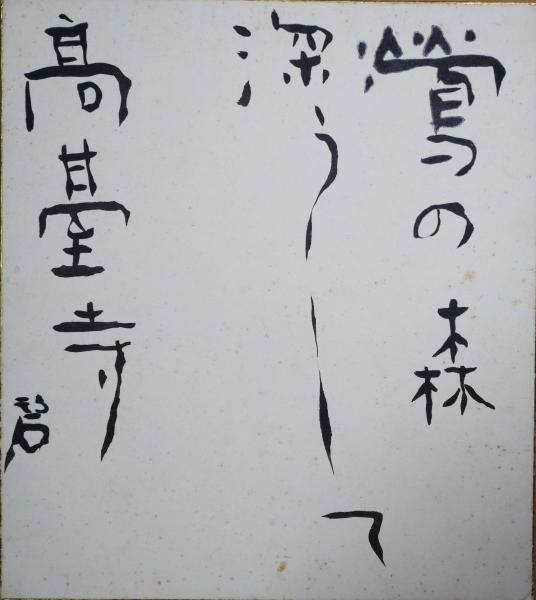 鶯の森
深うして
高臺寺